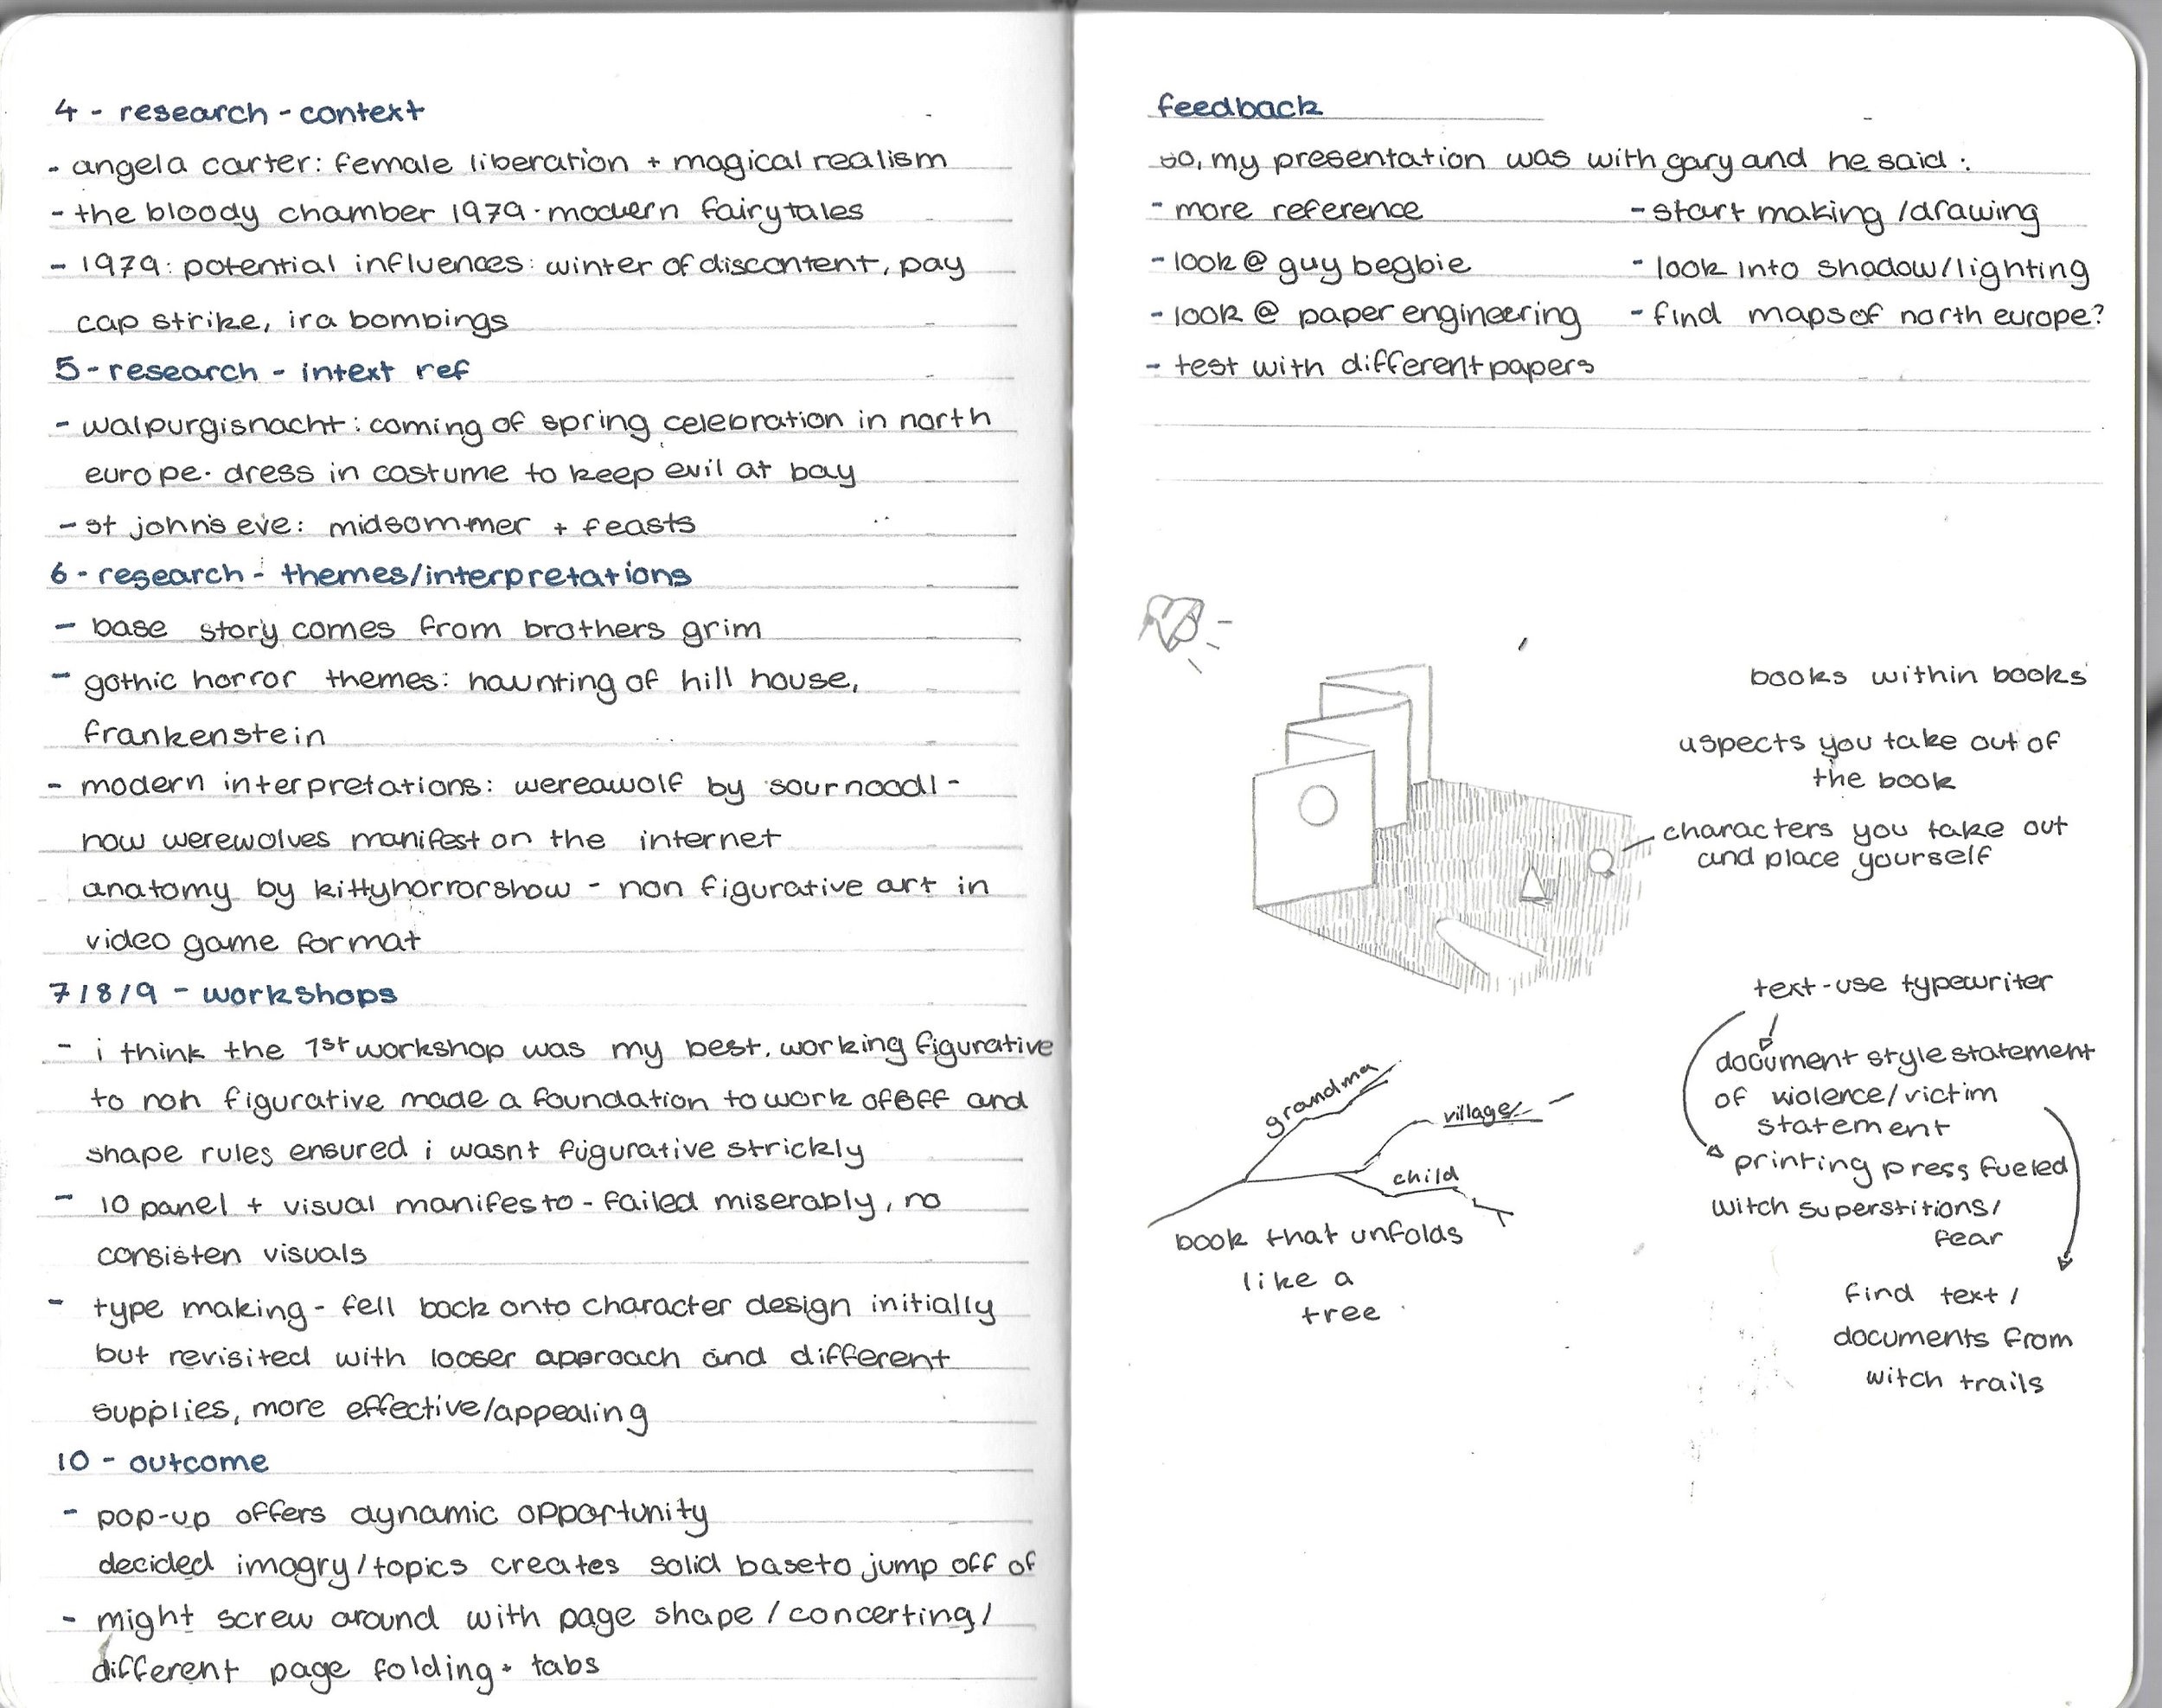 4 - research - context
- angela carter: female liberation + magical realism
- the bloody chamber 1979 · modern fairytales
- 1979: potential influences: winter of discontent, pay
cap strike, ira bombings
5 - research - intext ref
- walpurgisnacht: coming of spring celebration in north
europe. dress in costume to keep evil at bay
- st john's eve: midsommer + feasts
6 - research - themes/interpretations
- base story comes from brothers grim
- gothic horror themes: haunting of hill house,
frankenstein
- modern interpretations: wereawolf by sournoodl -
how werewolves manifest on the internet
anatomy by kittyhorrorshow - non figurative art in
video game format
7/8/9 - workshops
- i think the 1st workshop was my best. working figurative
to non figurative made a foundation to work off and
shape rules ensured i wasnt figurative strickly
- 10 panel + visual manifesto - failed miserably, no
consisten visuals
- type making - fell back onto character design initially
but revisited with looser approach and different
supplies, more effective/appealing
10 - outcome
- pop-up offers dynamic opportunity
decided imagry/topics creates solid base to jump off of
- might screw around with page shape / concerting/
different page folding + tabs
feedback
so, my presentation was with gary and he said:
- more reference
- look @ guy begbie
- look @ paper engineering
- test with different papers
- start making/drawing
- look into shadow/lighting
- find maps of north europe?
books within books
aspects you take out of
the book
characters you take out
and place yourself
text - use typewriter
document style statement
of violence/victim
statement
printing press fueled
witch superstitions/
fear
find text/
documents from
witch trails
grandma
village
child
book that unfolds
like a
tree